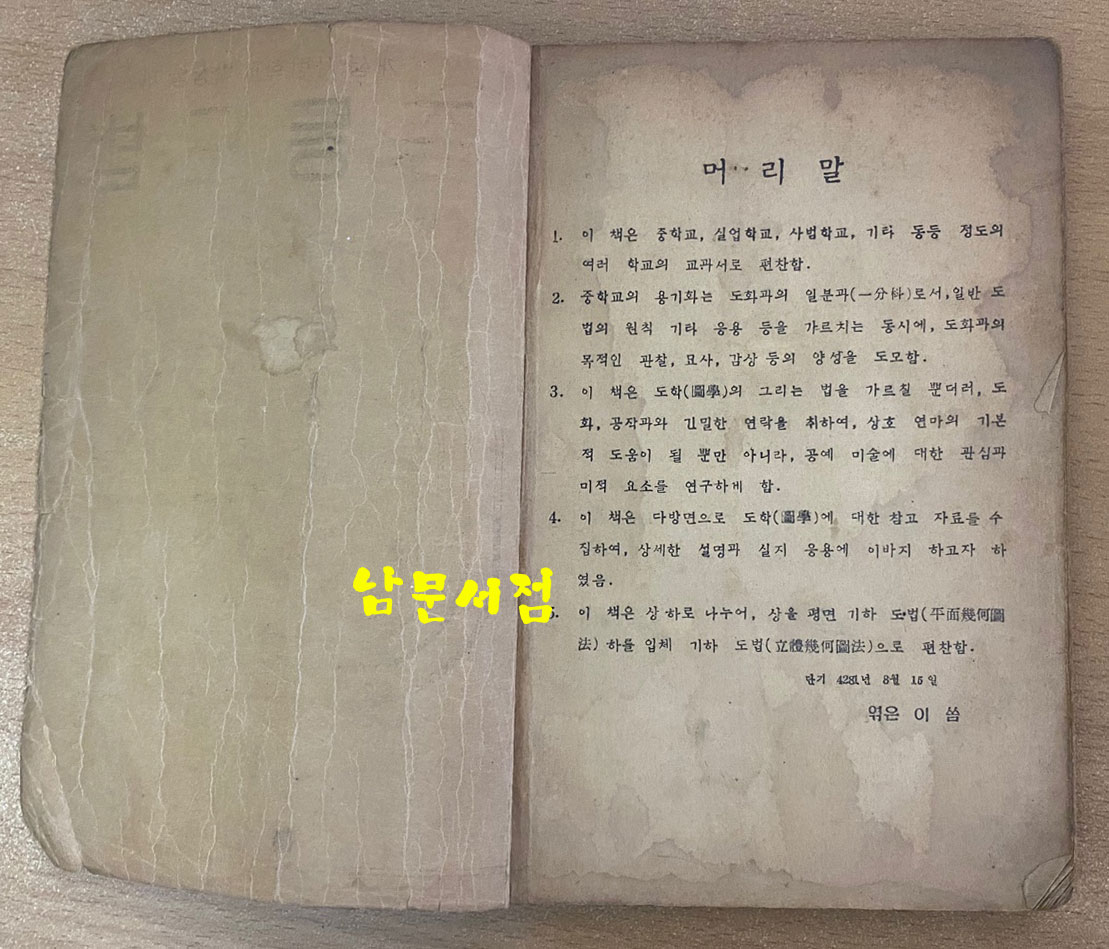 머 리 말
1. 이 책은 중학교, 실업학교, 사범학교, 기타 동등 정도의
여러 학교의 교과서로 편찬함.
2. 중학교의 용기화는 도화과의 일분과(一分科)로서, 일반 도
법의 원칙 기타 응용 등을 가르치는 동시에, 도화과의
목적인 관찰, 묘사, 감상 등의 양성을 도모함.
3. 이 책은 도학(圖學)의 그리는 법을 가르칠 뿐더러, 도
화, 공작과와 긴밀한 연락을 취하여, 상호 연마의 기본
적 도움이 될 뿐만 아니라, 공예 미술에 대한 관심과
미적 요소를 연구하게 함.
4. 이 책은 다방면으로 도학(圖學)에 대한 참고 자료를 수
집하여, 상세한 설명과 실지 응용에 이바지 하고자 하
였음.
남문서점
5. 이 책은 상 하로 나누어, 상을 평면 기하 도법(平面幾何圖
法) 하를 입체 기하 도법(立體幾何圖法)으로 편찬함.
단기 4281년 8월 15일
엮은 이 씀